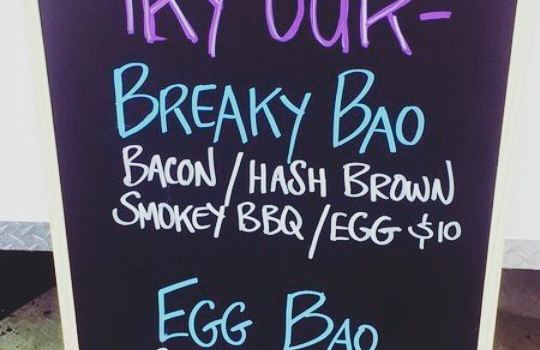 TRY OUR-
BREAKY BAO
BACON/HASH BROWN
SMOKEY BBQ/EGG $10
EGG BAO